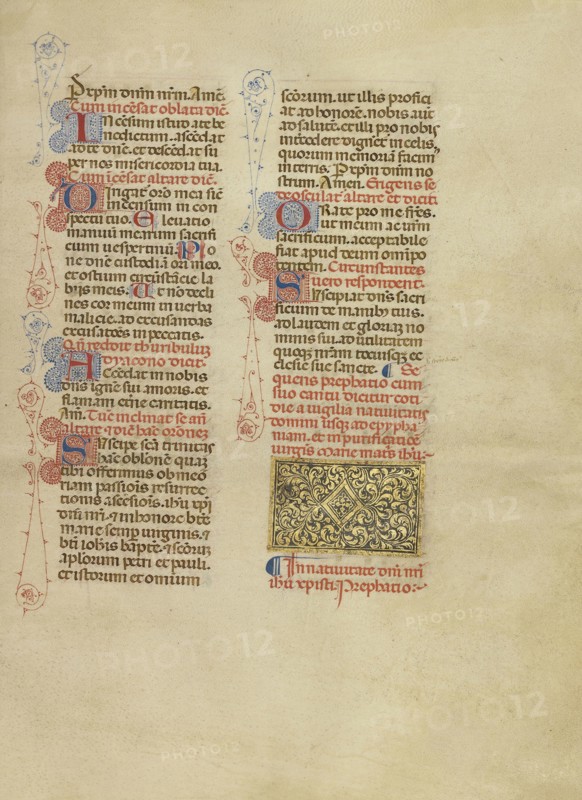 P xp̄m dn̄m nr̄m. Amē.
Cum incēsat oblata dic̄.
Incēsum istud ate be
nedictum. ascēdat
ad te dnē. et descēdat su
per nos misericordia tua.
Cum īcēsat altare dic̄.
Dirigat̄ orō mea sic̄
incensum in con
spectu tuo. Eleuatio
manuū mearum sacrifi
cium uespertinū. Po
ne dnē custodiā ori meo.
et ostium circūstācie la
bijs meis. Ut nō decli
nes cor meum in uerba
malicie. ad excusandas
excusatōes in peccatis.
Qn̄ reddit thuribulum
dyacono dicit.
Accēdat in nobis
dn̄s ignē sui amoris. et
flamam etn̄e caritatis.
Am̄. Tūc inclinat se an̄
altare ⁊ dic̄ hāc oronē
Suscipe scā trinitas
hāc oblōnē quaȝ
tibi offerimus ob meō
riam passiōis resurrec
tionis ascēsiōis. ihū xp̄i
dn̄i nr̄i. ⁊ in honore btē
marie semp̄ uirginis. ⁊
bt̄i ioh̄is bapt̄e. ⁊ scōrum
aplorum petri et pauli.
et istorum et omnium
scōrum. ut illis profici
at ad honorē. nobis aūt
ad salutē. et illi pro nobis
intēcedere dignēt in celis.
quorum memoriā facim̄
in terris. P xp̄m dn̄m no
strum. Amen. Erigens se
deosculat̄ altare et dicit
Orate pro me fr̄es.
ut meum ac ur̄m
sacrificium. acceptabile
fiat apud deum om̄ipo
tentem. Circumstantes
uero respondent.
Suscipiat dn̄s sacri
ficium de manibȝ tuis.
ad laudem et gloriaȝ no
minis sui. ad utilitatem
quoqȝ nr̄am tociusqȝ ec
clesie sue sancte. ¶ Se
quens prephatio cum
suo cantu dicitur coti
die a uigilia natiuitatis
domini usqȝ ad epypha
niam. et in purificatiōe
uirgis marie matis ihū.
¶ In natiuitate dn̄i nr̄i
ihū xpisti. Prephatio:~
PHOTO12
PHOTO12
PHOTO12
PHOTO12
PHOTO12
PHOTO12